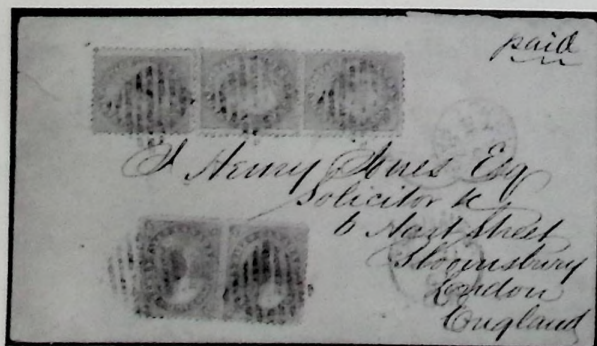 paid
J Henry Jones Esq
Solicitor &c
6 Hart Street
Bloomsbury
London
England